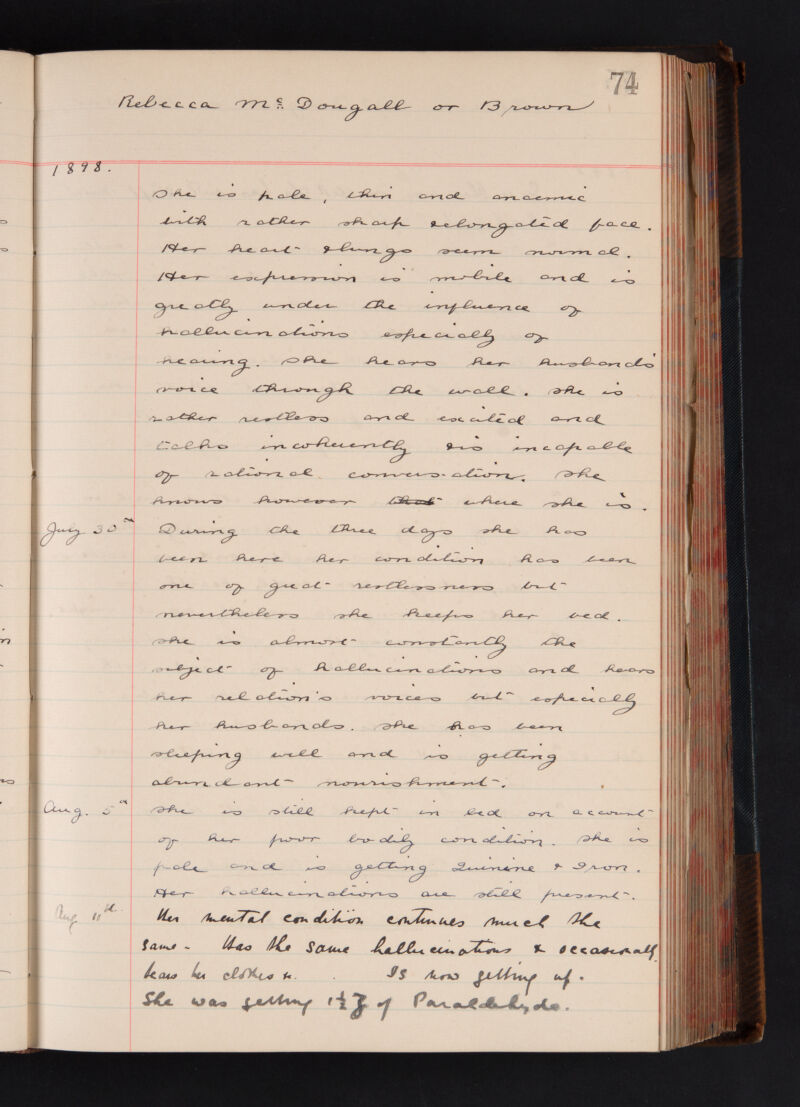 74
Rebecca Mc Dougall or Brown
1898.
She is pale, thin and anaemic
with rather sharp & elongated face.
Her heart & lungs seem normal.
Her expression is mobile and is
greatly under the influence of
hallucinations especially of
hearing. She hears her husband's
voice through the wall. She is
rather restless and excited and
talks incoherently & is incapable
of rational conversation. She
knows however that where she is.
July 30th During the three days she has
been here her condition has been
one of great restlessness but
nevertheless she keeps her bed.
She is almost constantly the
subject of hallucinations and hears
her relation's voices but especially
her husbands. She has been
sleeping well and is getting
abundant nourishment.
Aug. 5th She is still kept in bed on account
of her poor bodily condition. She is
pale and is getting Quinine & Iron.
Her hallucinations are still present.
Aug 11th Her mental condition continues much the
same - Has the same hallucinations & occasionally
tears her clothes. Is now getting up.
She was getting 1½ ʒ of Paraldehyde.